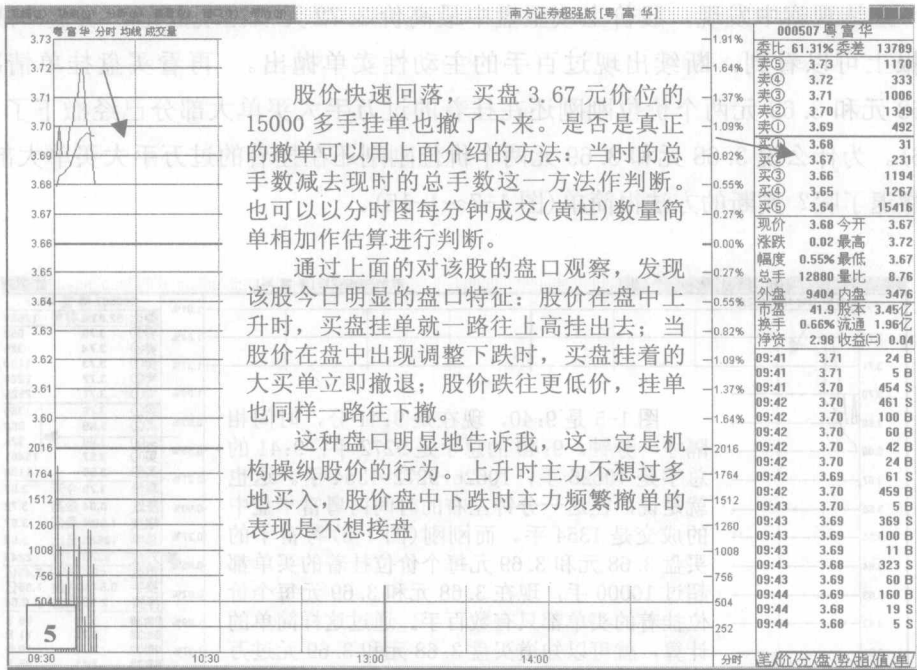 南方证券超强版 [粤 富 华]
粤富华 分时 均线 成交量
3.73
3.72
3.71
3.70
3.69
3.68
3.67
3.66
3.65
3.64
3.63
3.62
3.61
3.60
2016
1764
1512
1260
1008
756
504
5
09:30
10:30
13:00
14:00
股价快速回落，买盘 3.67 元价位的
15000 多手挂单也撤了下来。是否是真正
的撤单可以用上面介绍的方法：当时的总
手数减去现时的总手数这一方法作判断。
也可以以分时图每分钟成交(黄柱)数量简
单相加作估算进行判断。
通过上面的对该股的盘口观察，发现
该股今日明显的盘口特征：股价在盘中上
升时，买盘挂单就一路往上高挂出去；当
股价在盘中出现调整下跌时，买盘挂着的
大买单立即撤退；股价跌往更低价，挂单
也同样一路往下撤。
这种盘口明显地告诉我，这一定是机
构操纵股价的行为。上升时主力不想过多
地买入、股价盘中下跌时主力频繁撤单的
表现是不想接盘
1.91%
1.64%
1.37%
1.09%
0.82%
0.55%
0.27%
0.00%
0.27%
0.55%
0.82%
1.09%
1.37%
1.64%
2016
1764
1512
1260
1008
756
504
252
分时
000507 粤富华
委比 61.31% 委差 13789
卖⑤ 3.73 1170
卖④ 3.72 333
卖③ 3.71 1006
卖② 3.70 1349
卖① 3.69 492
买① 3.68 31
买② 3.67 231
买③ 3.66 1194
买④ 3.65 1267
买⑤ 3.64 15416
现价 3.68 今开 3.67
涨跌 0.02 最高 3.72
幅度 0.55% 最低 3.67
总手 12880 量比 8.76
外盘 9404 内盘 3476
市盈 41.9 股本 3.45亿
换手 0.66% 流通 1.96亿
净资 2.98 收益㈡ 0.04
09:41 3.71 24 B
09:41 3.71 5 B
09:41 3.70 454 S
09:42 3.70 461 S
09:42 3.70 100 B
09:42 3.70 60 B
09:42 3.70 42 B
09:42 3.70 24 B
09:42 3.69 61 S
09:42 3.70 459 B
09:43 3.70 5 B
09:43 3.69 369 S
09:43 3.69 100 B
09:43 3.69 11 B
09:43 3.68 323 S
09:43 3.69 60 B
09:44 3.69 160 B
09:44 3.68 19 S
09:44 3.68 5 S
笔/价/分/盘/势/指/值/单